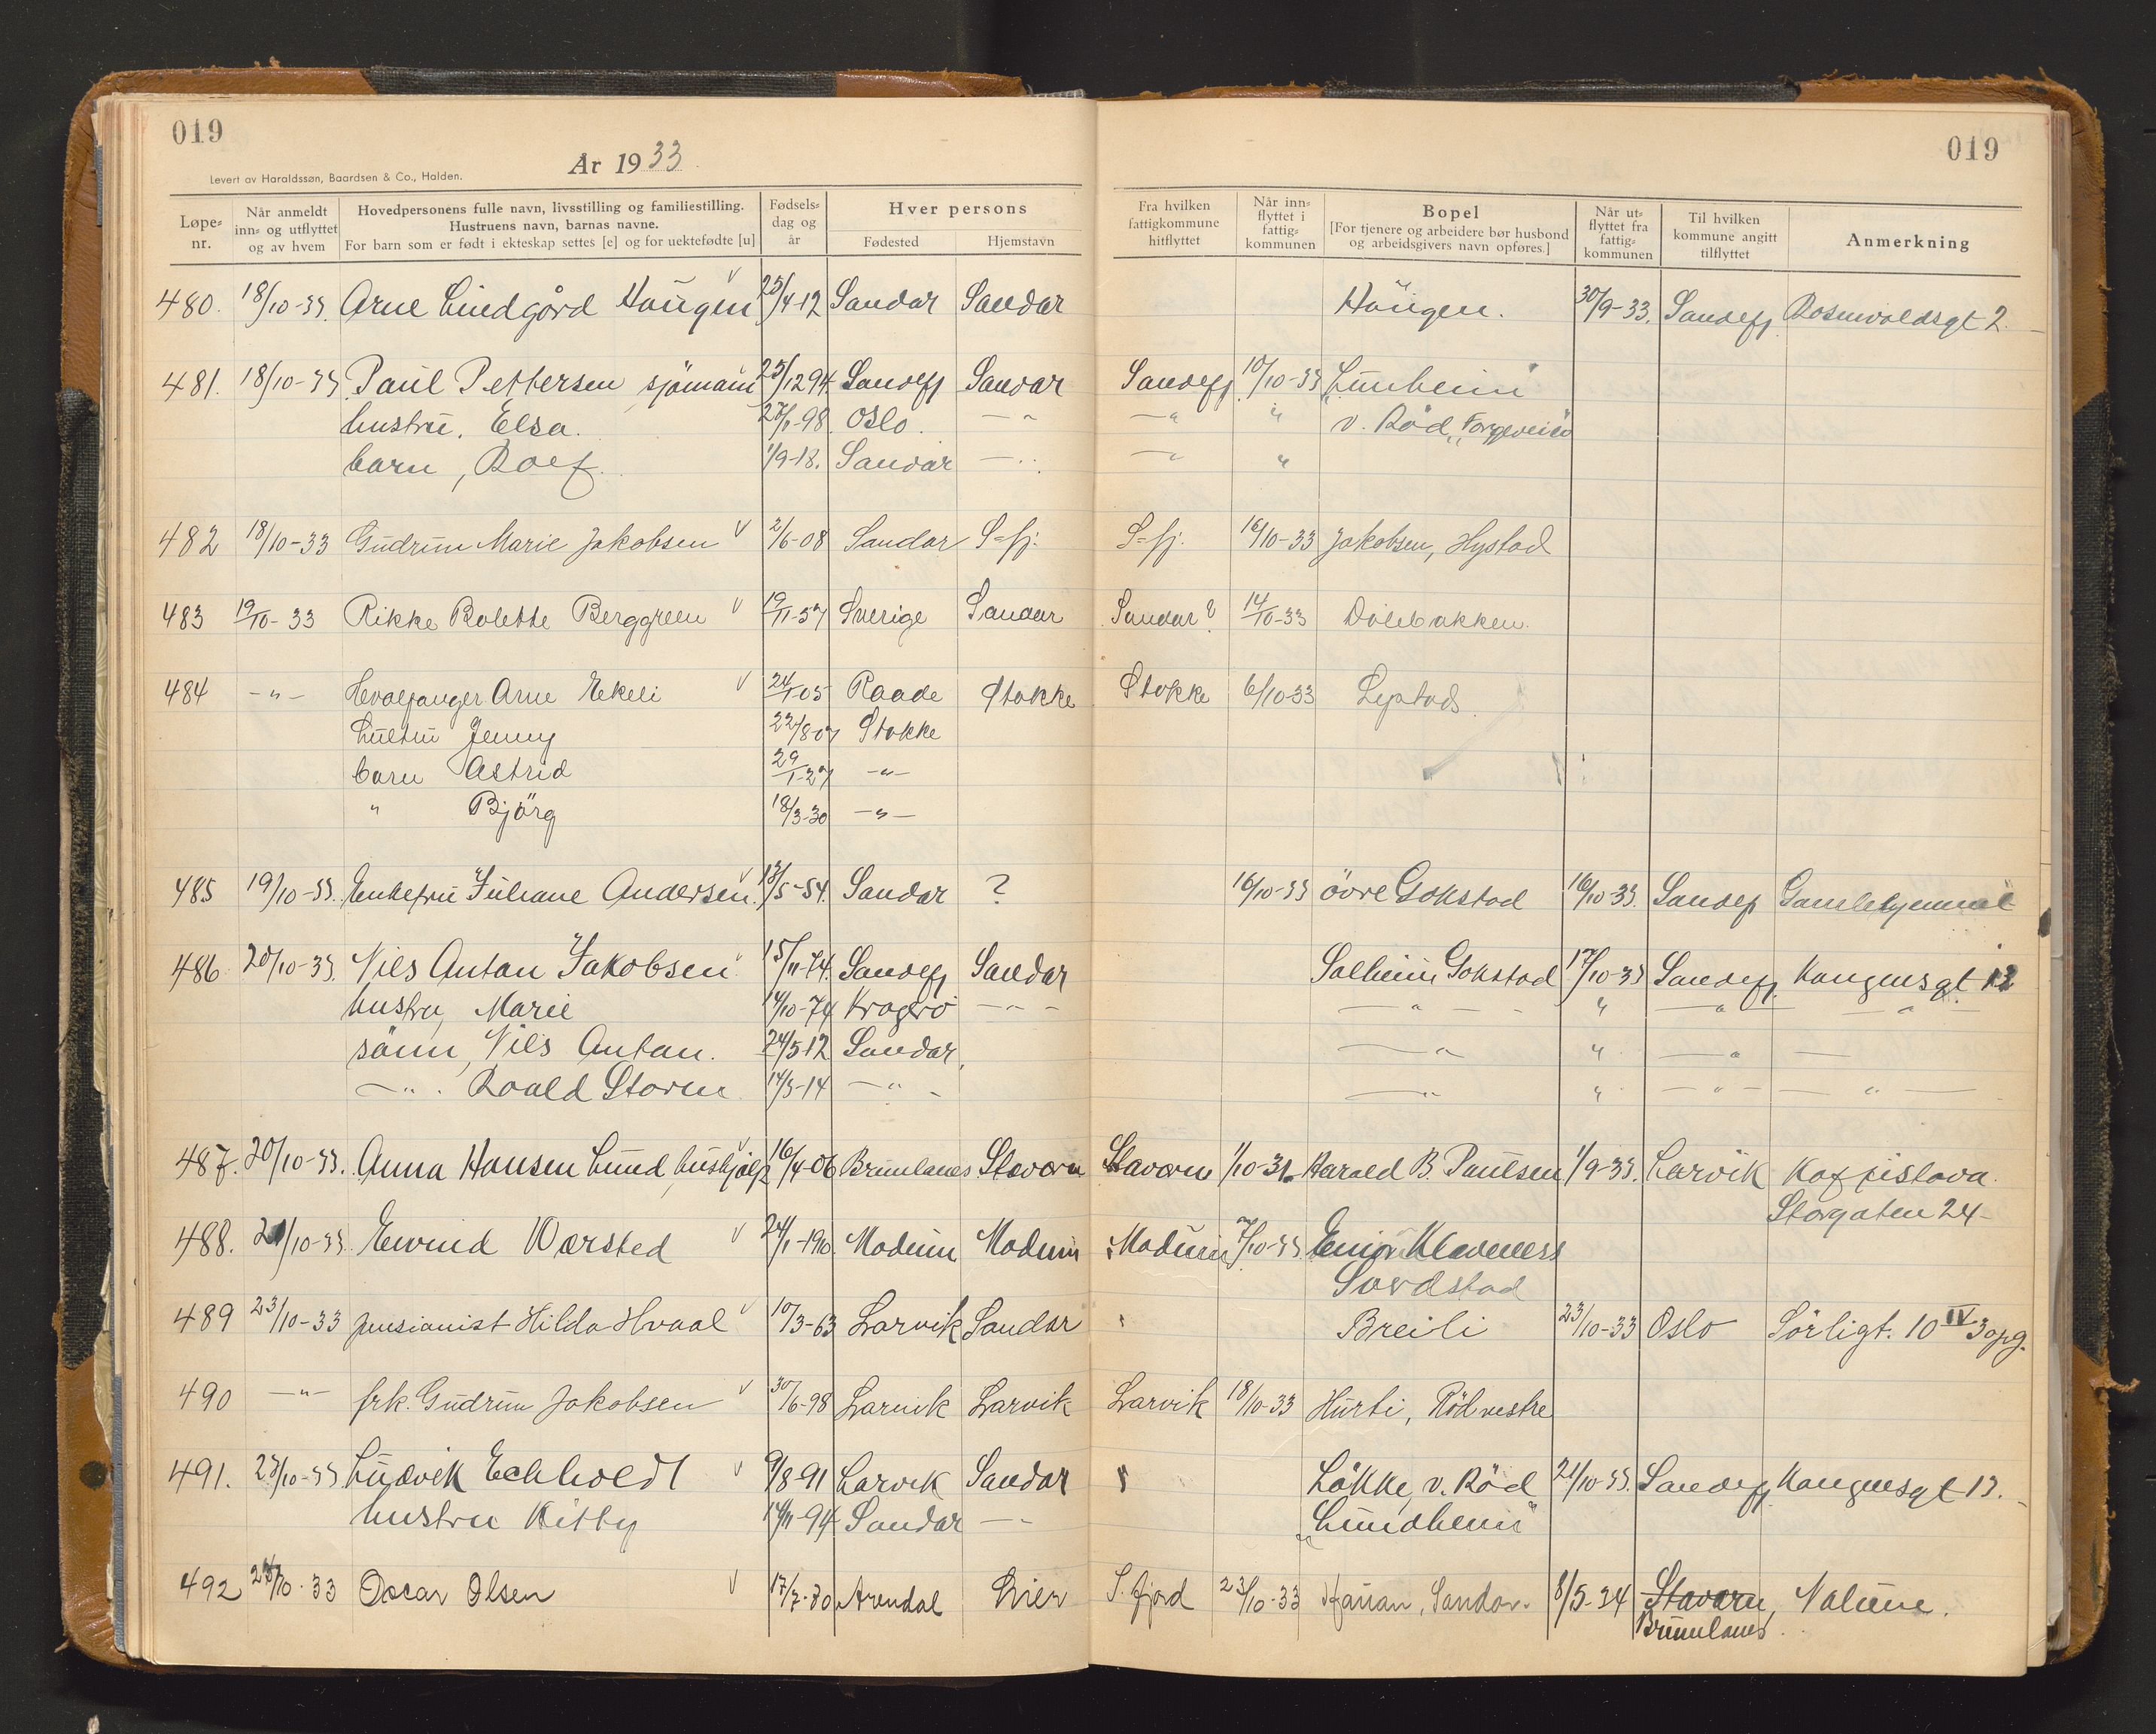 019
019
År 1933
Levert av Haraldssøn, Baardsen & Co., Halden.
Løpe-nr. Når anmeldt inn- og utflyttet og av hvem Hovedpersonens fulle navn, livsstilling og familiestilling. Hustruens navn, barnas navne. For barn som er født i ekteskap settes [e] og for uektefødte [u] Fødsels-dag og år Hver persons Fødested Hjemstavn Fra hvilken fattigkommune hitflyttet Når inn-flyttet i fattig-kommunen Bopel [For tjenere og arbeidere bør husbond og arbeidsgivers navn opføres.] Når ut-flyttet fra fattig-kommunen Til hvilken kommune angitt tilflyttet Anmerkning
480. 18/10-33. Arne Lindgård Haugen v 25/4-12 Sandar Sandar Haugen. 30/9-33. Sandefj Rosenvoldsgt 2.
481. 18/10-33 Paul Pettersen sjömann 25/12 94. Sandefj Sandar Sandefj 10/10-33 "Lunheim"
hustru, Elsa. 27/1-98 Oslo. —"— —"— " v. Röd, Forgeveien
barn, Rolf. 1/9-18. Sandar —"— —"— "
482 18/10-33 Gudrun Marie Jakobsen v 2/6-08 Sandar S-fj. S-fj. 16/10-33 Jakobsen, Hystad
483 19/10-33 Rikke Bolette Berggreen v 19/11-57 Sverige Sandar Sandar? 14/10-33 Dölebakken.
484 —"— Hvalfanger Arne Ekeli v 24/1 05 Raade Stokke Stokke 6/10-33 Lystad.
hustru Jenny 22/8-07 Stokke
barn Astrid 29/1-27 —"—
" Björg 18/3-30 —"—
485 19/10-33. Enkefru Juliane Andersen. v 13/5-54. Sandar ? 16/10-33 övre Gokstad 16/10-33. Sandefj Gamlehjemmet
486 20/10-33. Nils Anton Jakobsen v 15/11-74. Sandefj Sandar Solheim Gokstad 17/10-33 Sandefj. Kongensgt. 13
hustru, Marie 14/10-74 Kragerö —"— —"— " —"— —"—
sönn, Nils Anton. 24/5-12 Sandar, —"— " —"— —
—"—. Roald Storm 14/3-14 —"— —"— " —"— —"—
487. 20/10-33. Anna Hansen Lund, hushjelp v 16/4-06 Brunlanes Stavern Stavern 1/10-31. Harald B. Paulsen 1/9-33. Larvik Kaffistova.
Storgaten 24-
488. 21/10-33. Eivind Vorsted v 24/1-190 Modum Modum Modum 7/10-33 Einar Klaveness
Sordstad
489 23/10-33 pensionist Hilda Hvaal v 10/3-63 Larvik Sandar " Breili 23/10-33 Oslo Sörligt. 10 IV 3opg.
490 —"— frk. Gudrun Jakobsen v 30/6-98 Larvik Larvik Larvik 18/10-33 Hurti, Röd vestre
491. 23/10-33 Ludvik Echholdt v 9/8-91 Larvik Sandar " Lökke, v. Röd 21/10-33. Sandefj Kongensgt 13.
hustru Kitty 14/11-94 Sandar —"— "Lundheim"
492 24/10-33 Oscar Olsen v 17/7-80 Arendal Lier S. fjord 23/10-33 Hauan, Sandar. 8/5-34 Stavern, Nalum.
Brunlanes.